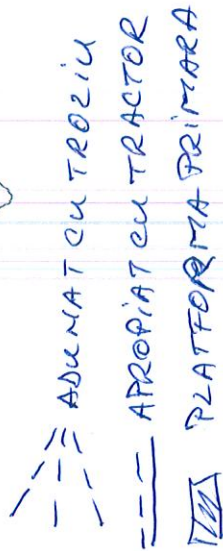 ADUNAT CU TROZIU
APROPIAT CU TRACTOR
PLATFORMA PRIMARA